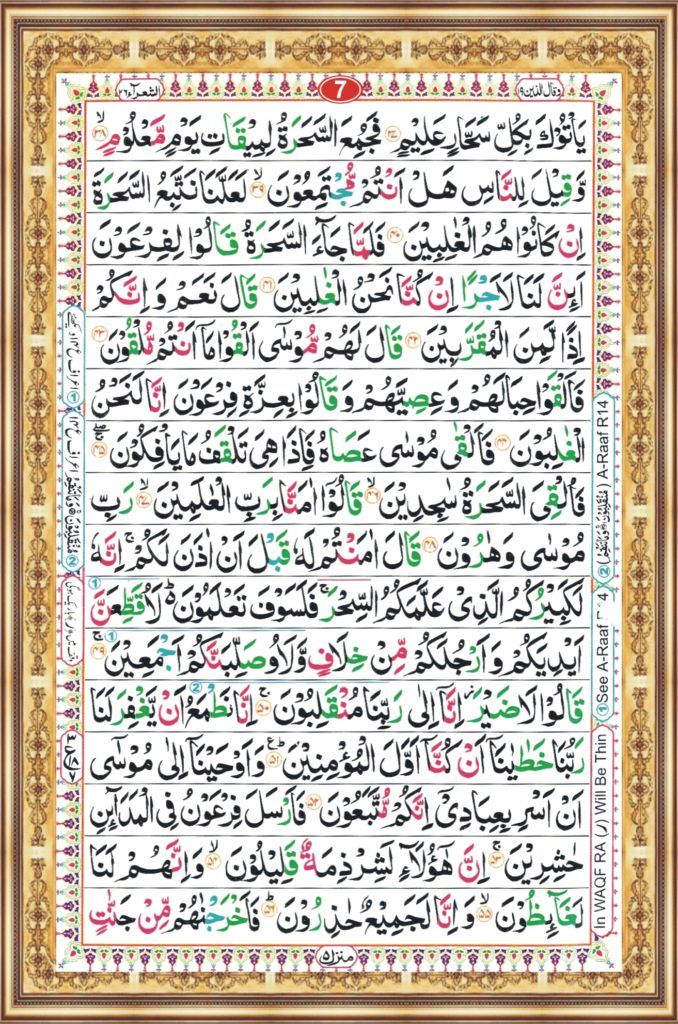 وقال الذين ١٩
7
الشعراء ٢٦
يَاْتُوْكَ بِكُلِّ سَحَّارٍ عَلِيْمٍ ۝٣٧ فَجُمِعَ السَّحَرَةُ لِمِيْقَاتِ يَوْمٍ مَّعْلُوْمٍ ۙ۝٣٨
وَّقِيْلَ لِلنَّاسِ هَلْ اَنْتُمْ مُّجْتَمِعُوْنَ ۙ۝٣٩ لَعَلَّنَا نَتَّبِعُ السَّحَرَةَ
اِنْ كَانُوْا هُمُ الْغٰلِبِيْنَ ۝٤٠ فَلَمَّا جَآءَ السَّحَرَةُ قَالُوْا لِفِرْعَوْنَ
اَئِنَّ لَنَا لَاَجْرًا اِنْ كُنَّا نَحْنُ الْغٰلِبِيْنَ ۝٤١ قَالَ نَعَمْ وَاِنَّكُمْ
اِذًا لَّمِنَ الْمُقَرَّبِيْنَ ۝٤٢ قَالَ لَهُمْ مُّوْسٰٓى اَلْقُوْا مَاۤ اَنْتُمْ مُّلْقُوْنَ ۝٤٣
فَاَلْقَوْا حِبَالَهُمْ وَعِصِيَّهُمْ وَقَالُوْا بِعِزَّةِ فِرْعَوْنَ اِنَّا لَنَحْنُ
الْغٰلِبُوْنَ ۝٤٤ فَاَلْقٰى مُوْسٰى عَصَاهُ فَاِذَا هِيَ تَلْقَفُ مَا يَاْفِكُوْنَ ۝٤٥
فَاُلْقِيَ السَّحَرَةُ سٰجِدِيْنَ ۙ۝٤٦ قَالُوْۤا اٰمَنَّا بِرَبِّ الْعٰلَمِيْنَ ۙ۝٤٧ رَبِّ
مُوْسٰى وَهٰرُوْنَ ۝٤٨ قَالَ اٰمَنْتُمْ لَهٗ قَبْلَ اَنْ اٰذَنَ لَكُمْ ۚ اِنَّهٗ
لَكَبِيْرُكُمُ الَّذِيْ عَلَّمَكُمُ السِّحْرَ ۚ فَلَسَوْفَ تَعْلَمُوْنَ ؕ لَاُقَطِّعَنَّ
اَيْدِيَكُمْ وَاَرْجُلَكُمْ مِّنْ خِلَافٍ وَّلَاُوصَلِّبَنَّكُمْ اَجْمَعِيْنَ ۚ۝٤٩
قَالُوْا لَا ضَيْرَ ؗ اِنَّاۤ اِلٰى رَبِّنَا مُنْقَلِبُوْنَ ۚ۝٥٠ اِنَّا نَطْمَعُ اَنْ يَّغْفِرَ لَنَا
رَبُّنَا خَطٰيٰنَاۤ اَنْ كُنَّاۤ اَوَّلَ الْمُؤْمِنِيْنَ ؕ۝٥١ وَاَوْحَيْنَاۤ اِلٰى مُوْسٰٓى
اَنْ اَسْرِ بِعِبَادِيْۤ اِنَّكُمْ مُّتَّبَعُوْنَ ۝٥٢ فَاَرْسَلَ فِرْعَوْنُ فِي الْمَدَآئِنِ
حٰشِرِيْنَ ۚ۝٥٣ اِنَّ هٰۤؤُلَآءِ لَشِرْذِمَةٌ قَلِيْلُوْنَ ۙ۝٥٤ وَاِنَّهُمْ لَنَا
لَغَآئِظُوْنَ ۙ۝٥٥ وَاِنَّا لَجَمِيْعٌ حٰذِرُوْنَ ؕ۝٥٦ فَاَخْرَجْنٰهُمْ مِّنْ جَنّٰتٍ
منزل ۵
① See A-Raaf
② A-Raaf R14
In WAQF RA (ر) Will Be Thin